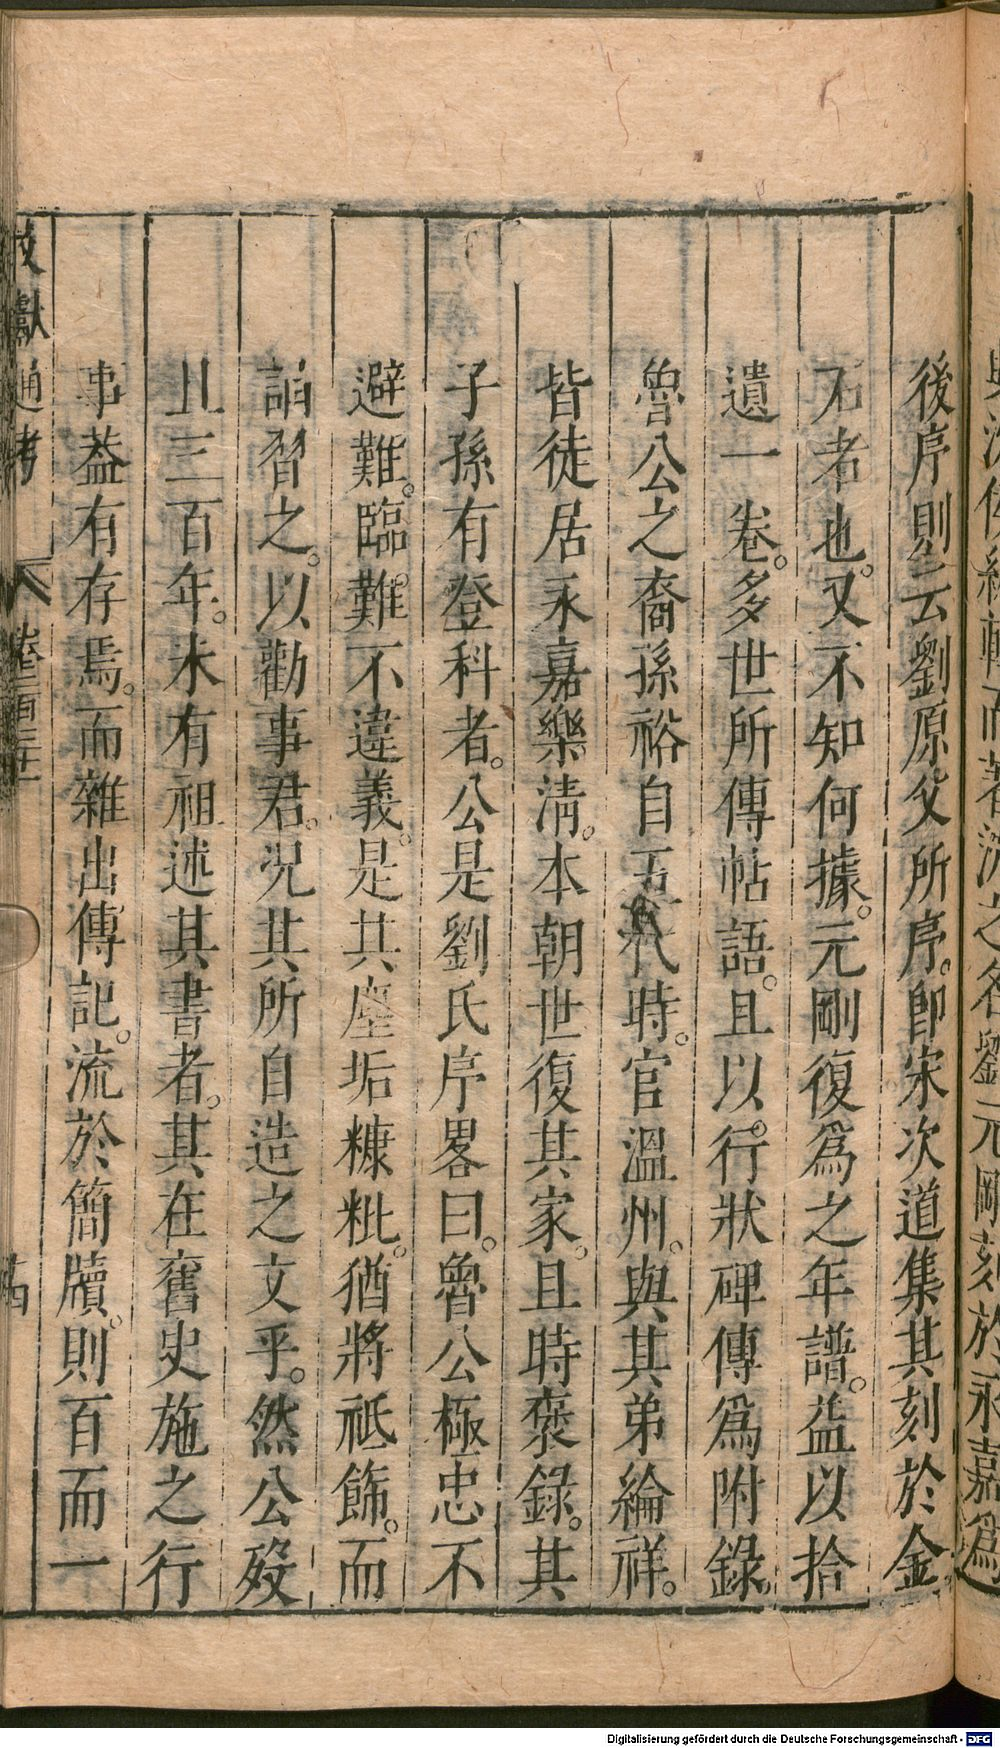 後序則云劉原父所序。卽宋次道集其刻於金
石者也。又不知何據。元剛復爲之年譜。益以拾
遺一卷。多世所傳帖語。且以行狀碑傳爲附錄。
魯公之裔孫裕自五代時。官溫州。與其弟綸祥。
皆徙居永嘉樂淸。本朝世復其家。且時褒錄。其
子孫有登科者。公是劉氏序畧曰。魯公極忠不
避難。臨難不違義。是其塵垢糠粃。猶將祗飾。而
誦習之。以勸事君。況其所自造之文乎。然公歿
且三百年。未有祖述其書者。其在舊史施之行
事葢有存焉。而雜出傳記。流於簡牘。則百而一
文獻通考 卷二百三十一 十四
劉元剛刻於永嘉爲
Digitalisierung gefördert durch die Deutsche Forschungsgemeinschaft - DFG